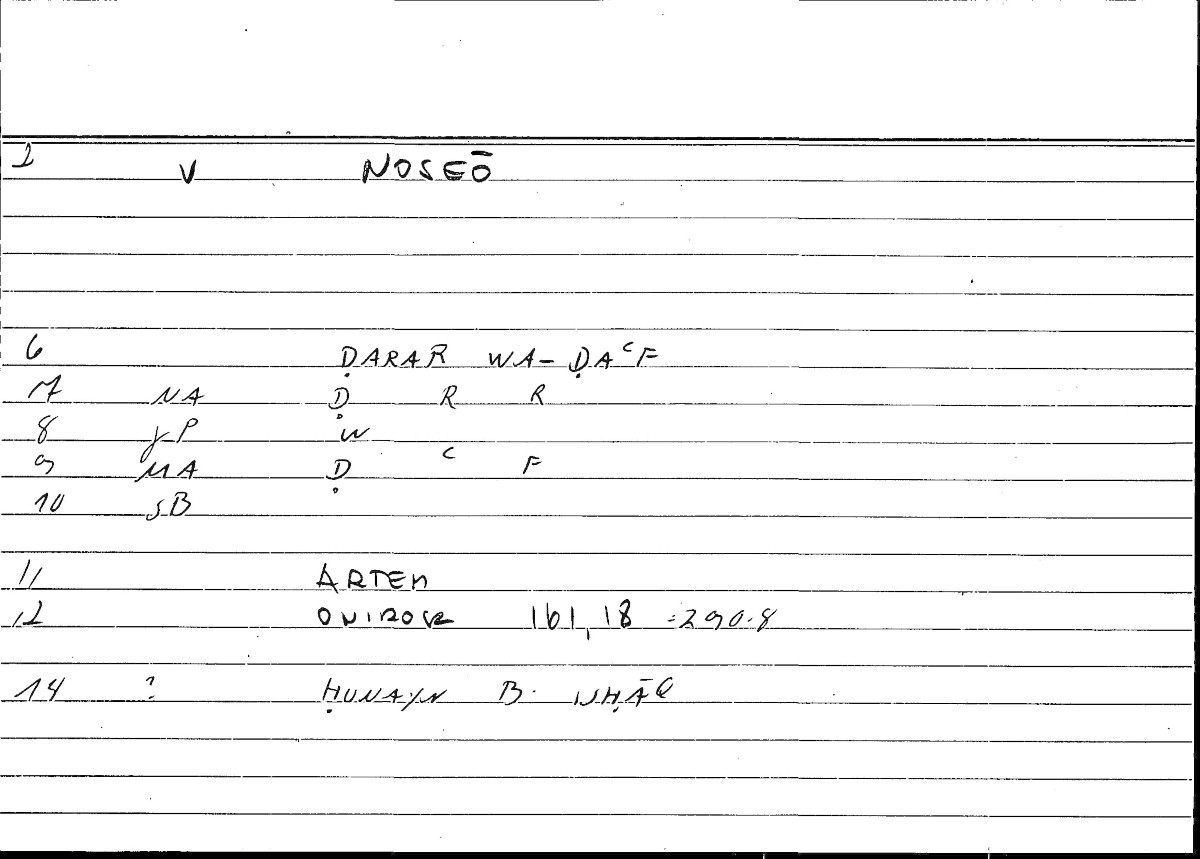 2 V NOSEŌ
6 ḌARAR WA-ḌAᶜF
7 NA Ḍ R R
8 γP W
9 MA Ḍ ᶜ F
10 sB
11 ARTEM
12 ONIROCR 161,18 =290.8
14 ? ḤUNAYN B. ISḤĀQ